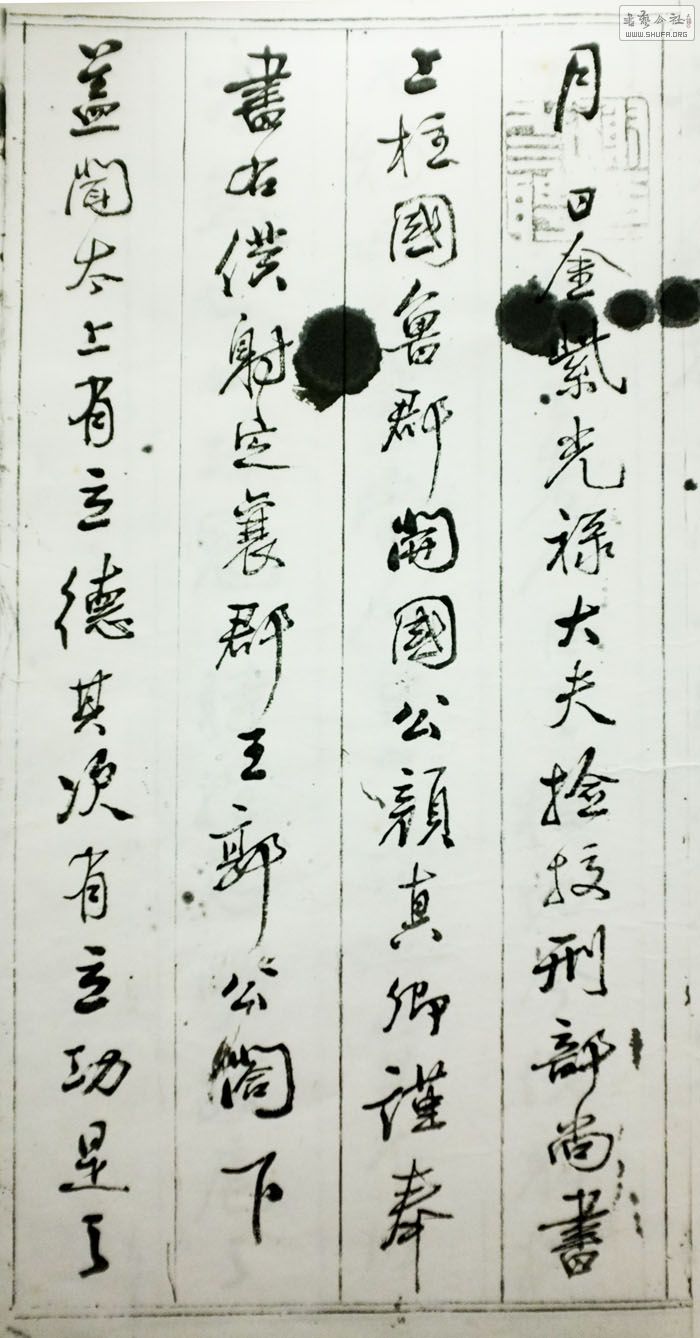 月日金紫光禄大夫捡挍刑部尚書
上柱國魯郡開國公顔真卿謹奉
書右僕射定襄郡王郭公閤下
盖聞太上有立德其次有立功是之
書藝公社
WWW.SHUFA.ORG